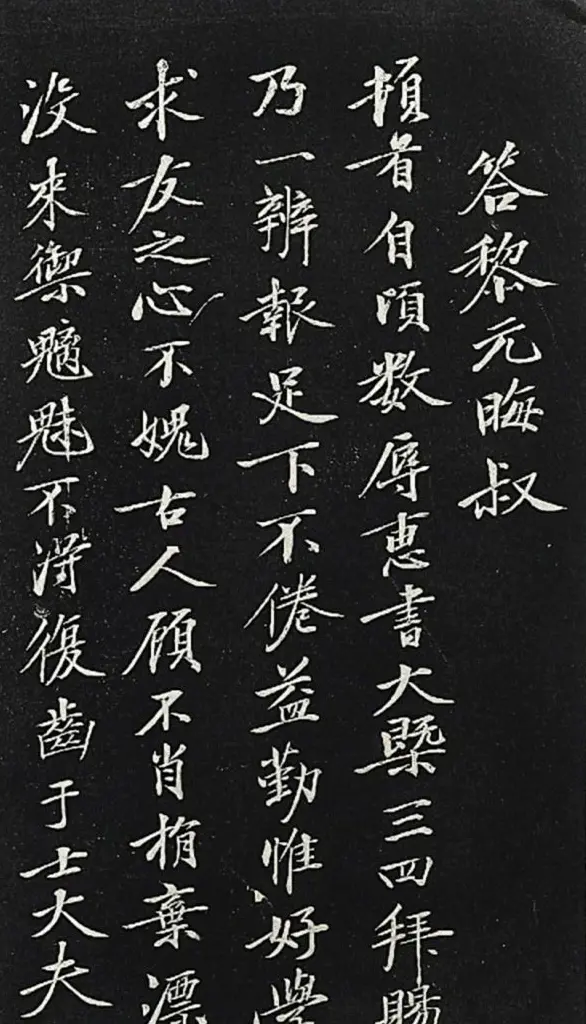 答黎元晦叔
頓首自頃数辱惠書大槩三四拜賜
乃一辨報足下不倦益勤惟好學
求友之心不媿古人顧不肖捐棄漂
没來禦魑魅不得復齒于士大夫